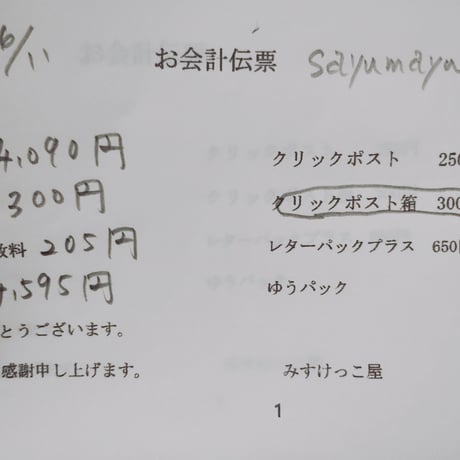 6/11 お会計伝票 sayumayu
4,090円 クリックポスト 250
300円 クリックポスト箱 300
料 205円 レタープックプラス 650円
4,595円 ゆうパック
とうございます。
感謝申し上げます。 みすけっこ屋
1